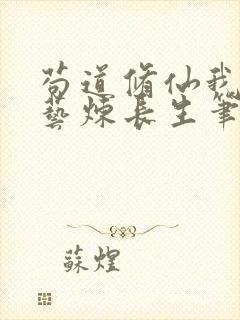 苟道脩仙我
藝煉長生筆
蘇煌